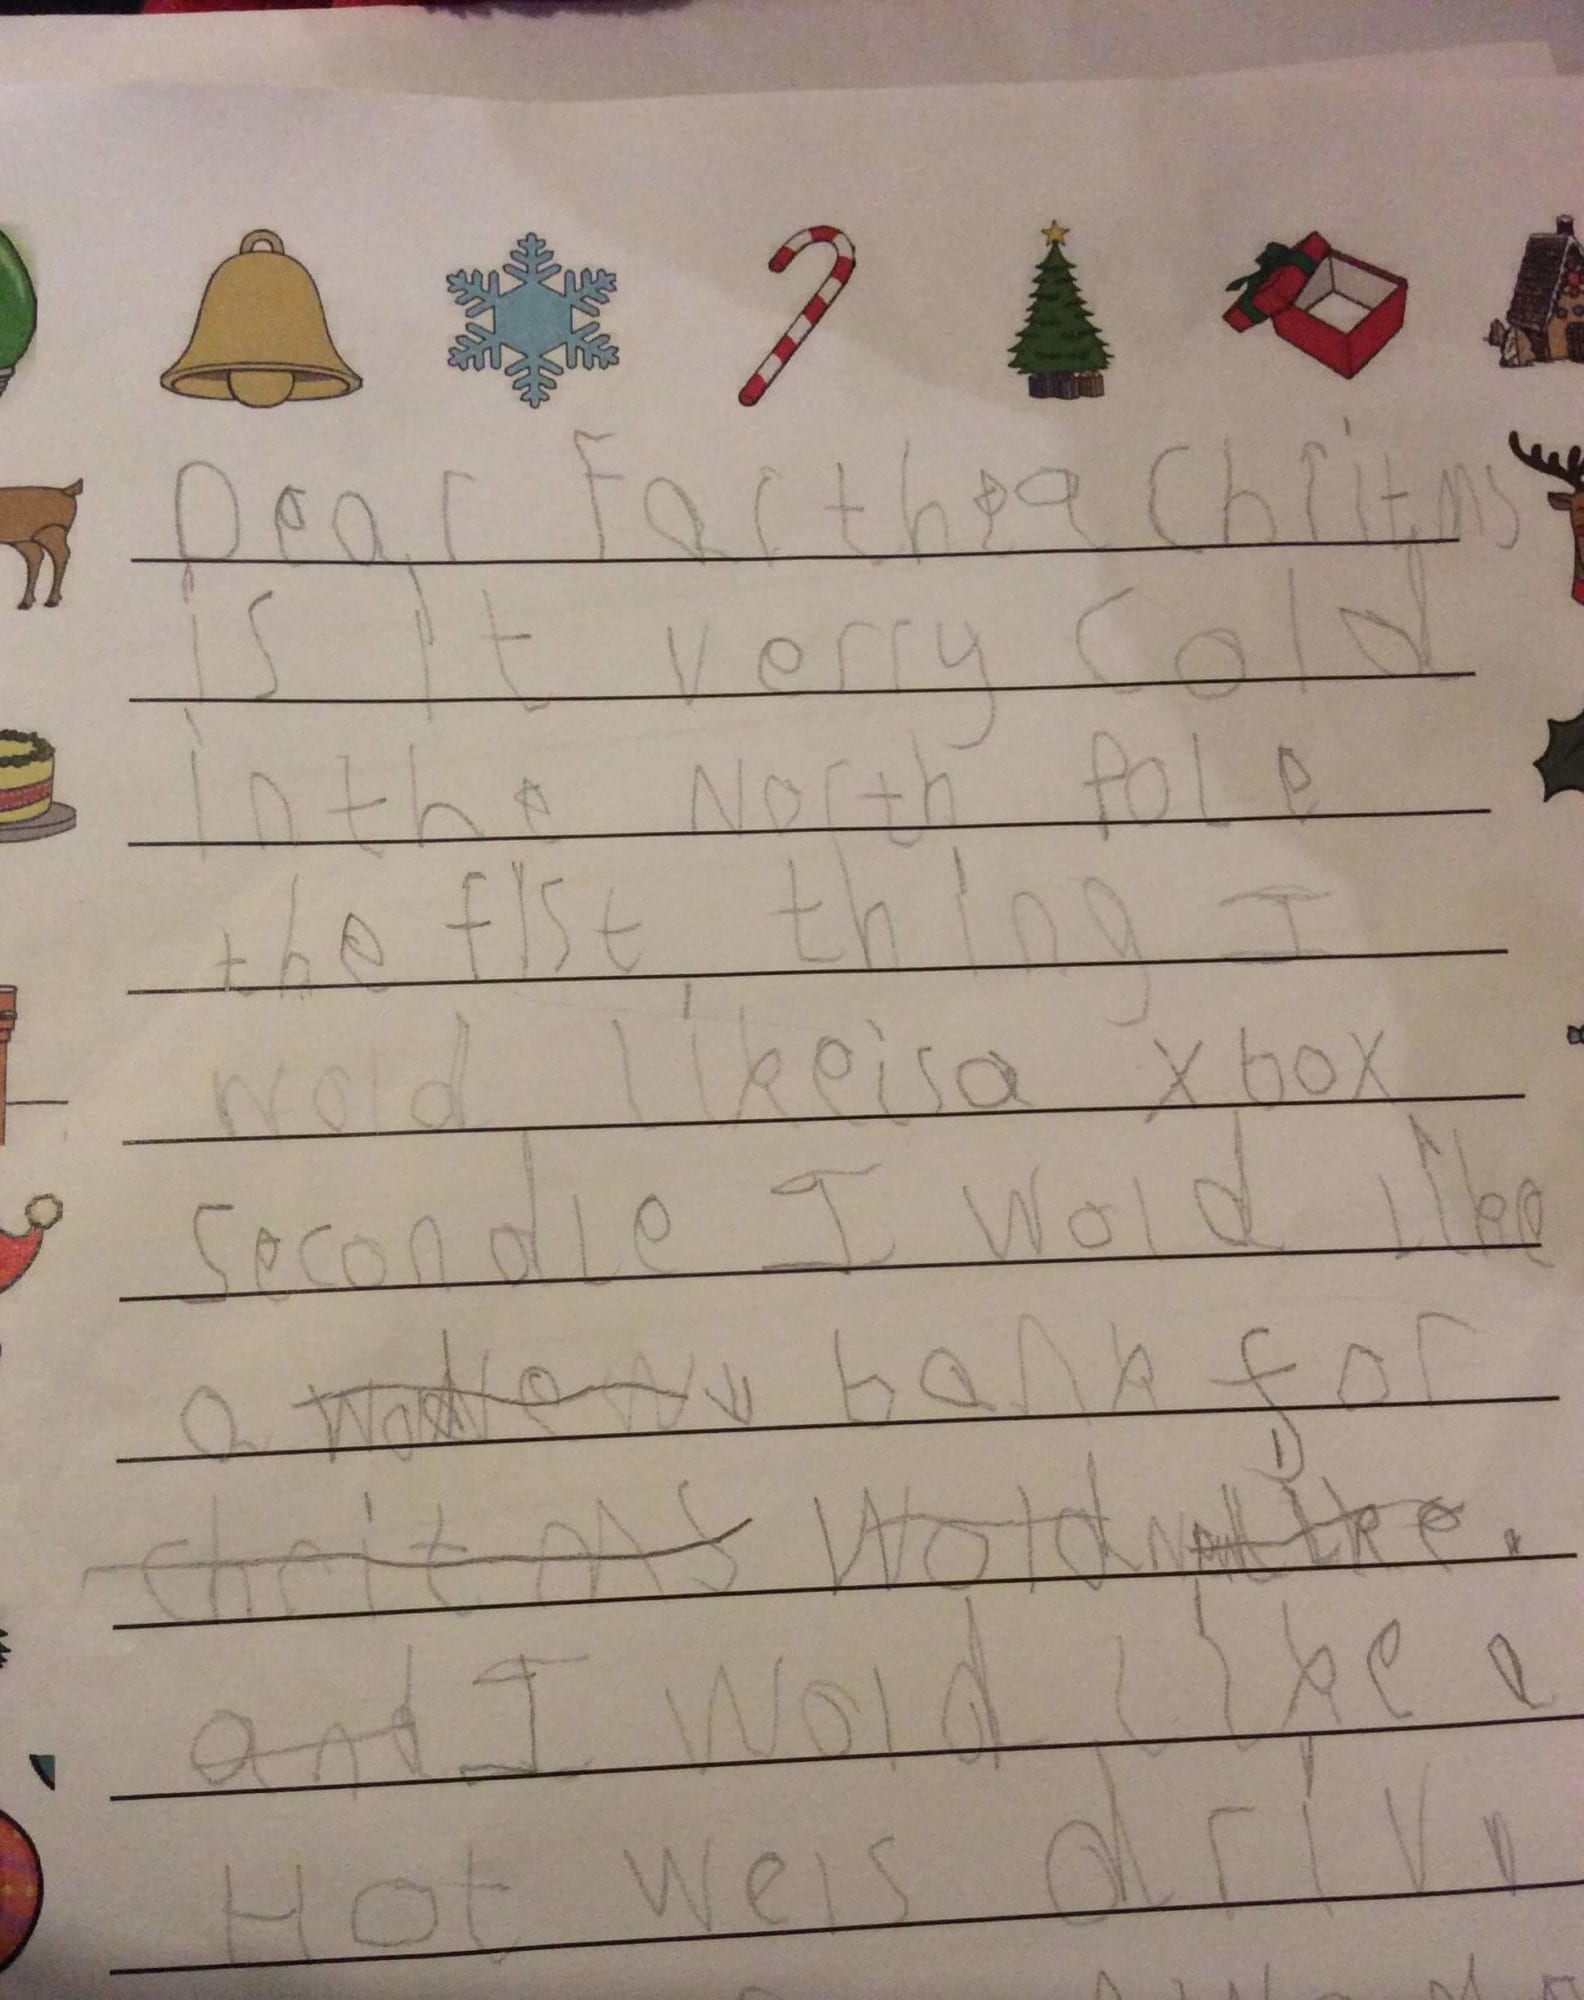 Dear Farther Chritms
is it verry cold
inthe North pole
the fist thing I
wold likeisa xbox
secondle I wold like
a bank for
chritms wold like.
and I wold like a
Hot wels driv